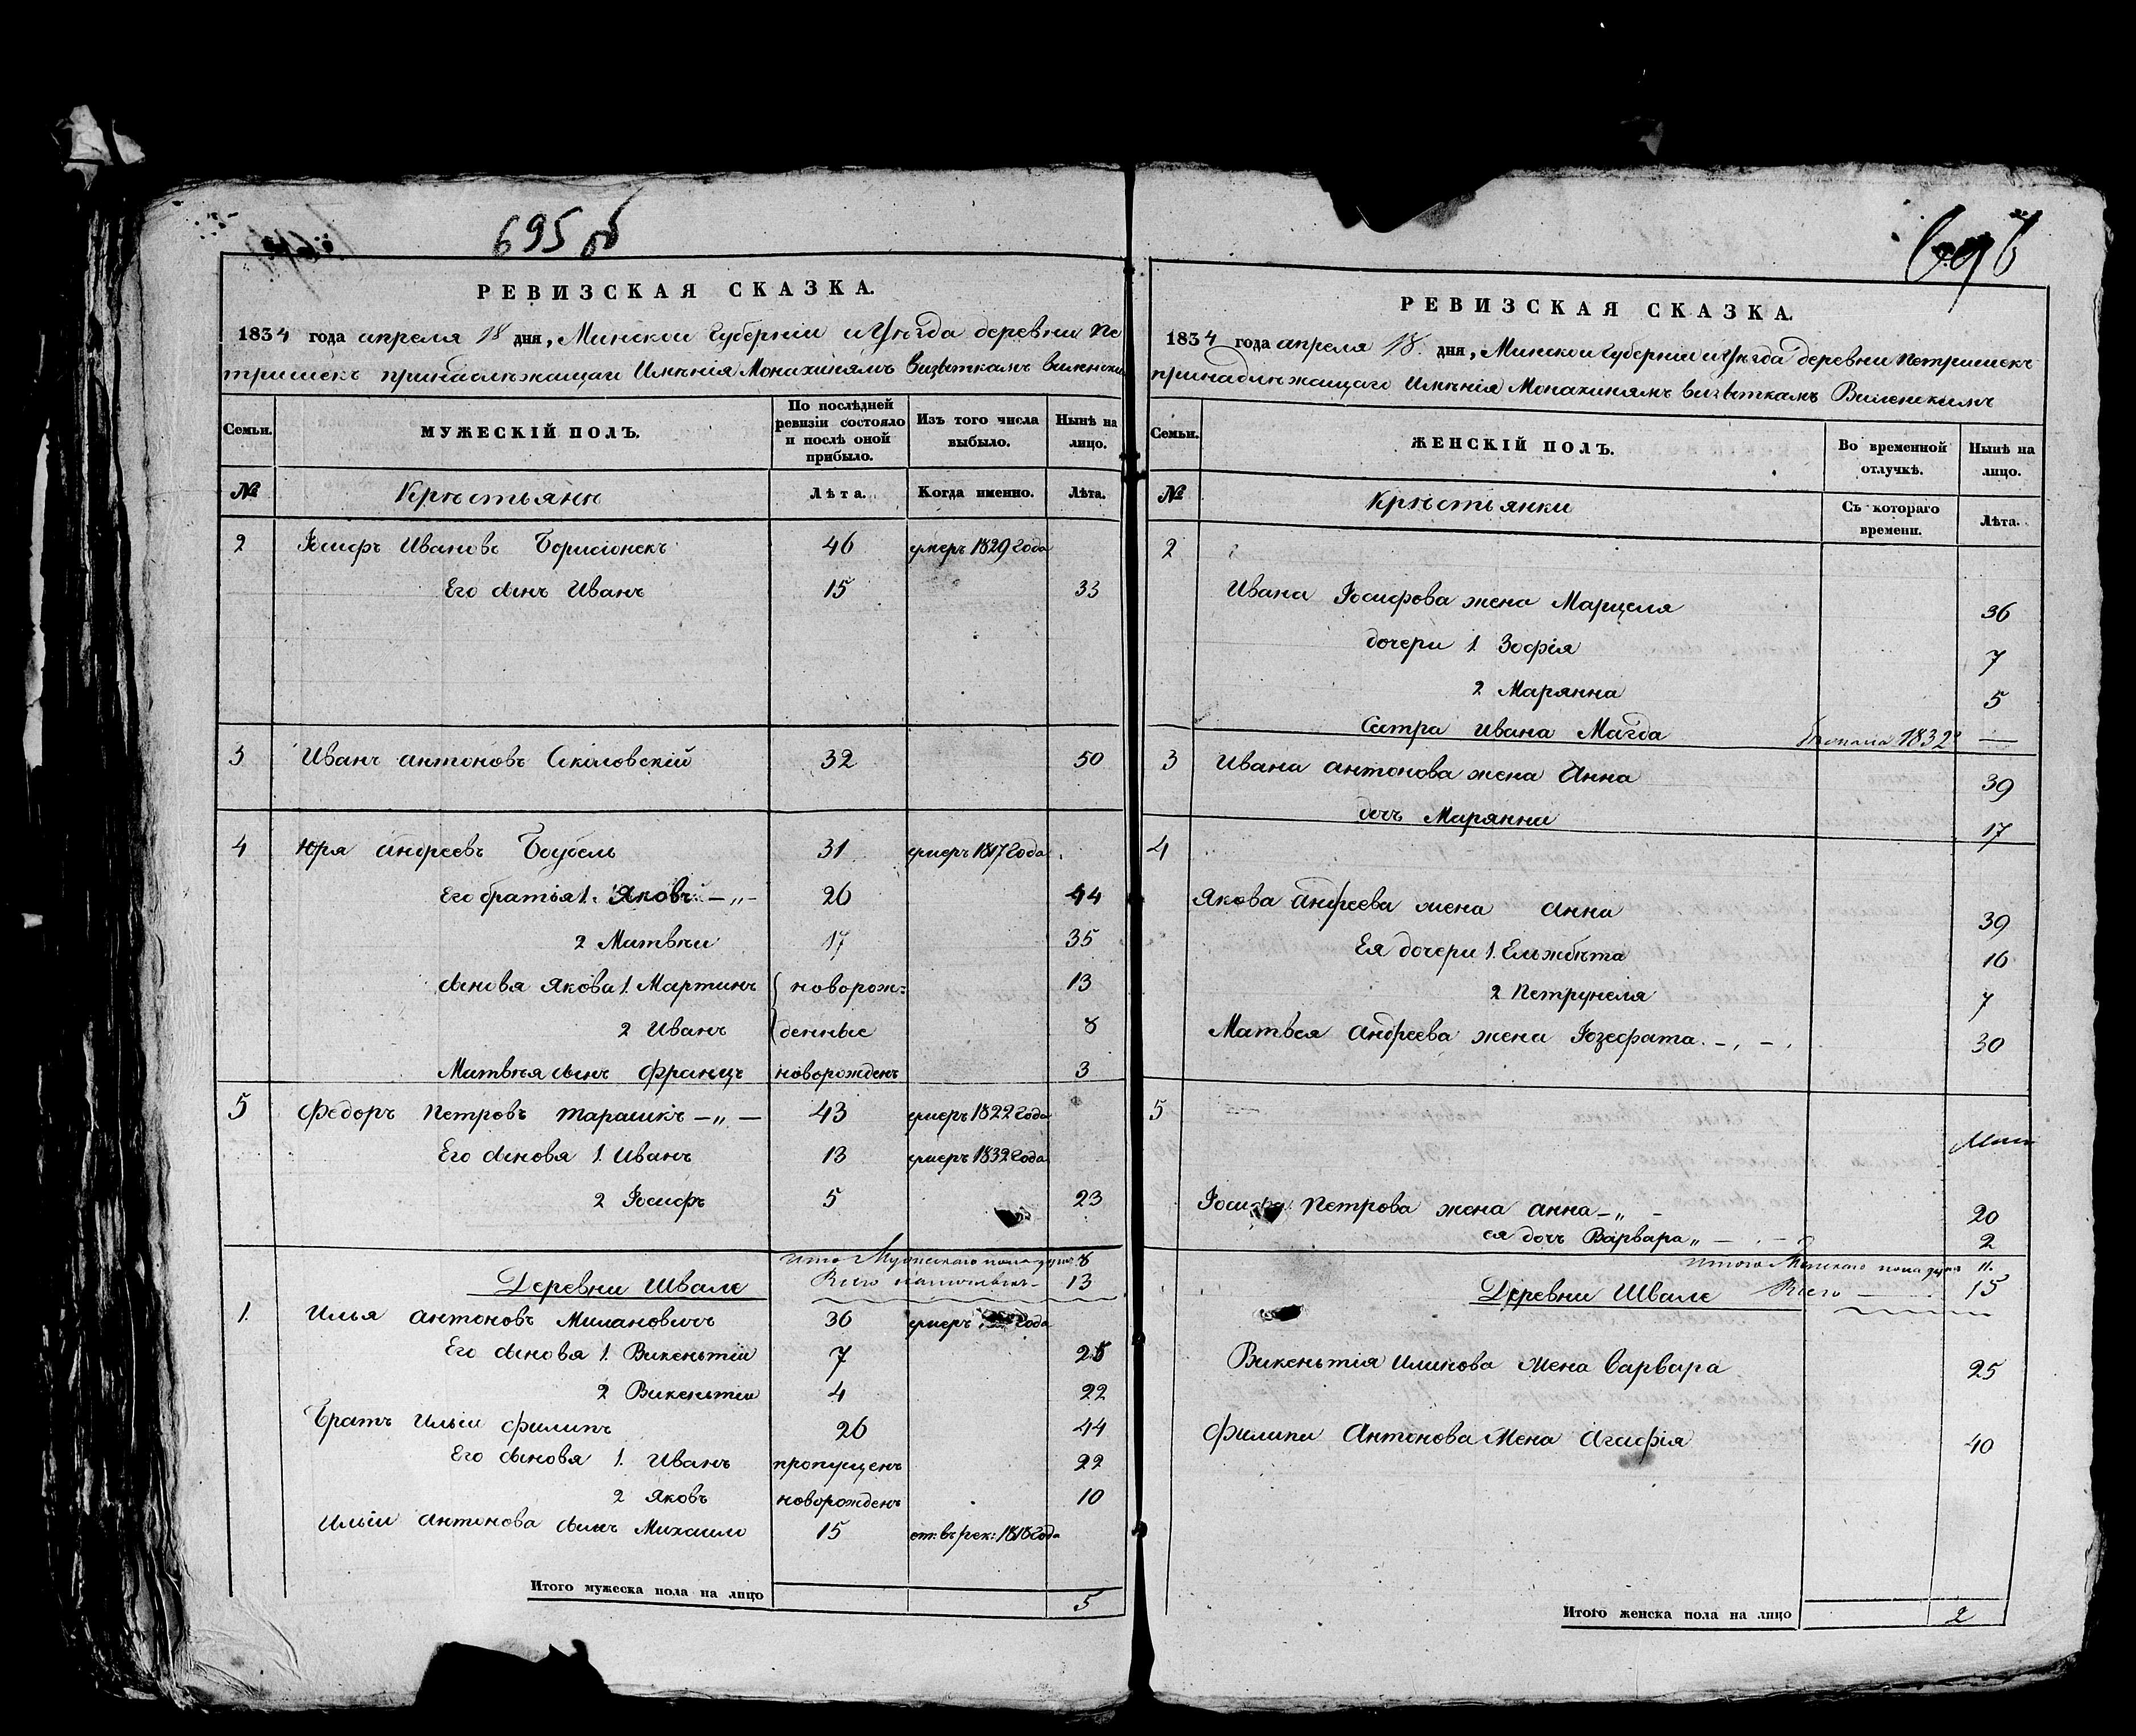 695 об
РЕВИЗСКАЯ СКАЗКА.
1834 года апреля 18 дня, Минской Губернии и Уѣзда деревни Пе
тришекъ принадлѣжащаги Имѣнія Монахинямъ визыткамъ виленски
Семьи. МУЖЕСКІЙ ПОЛЪ. По послѣдней ревизіи состояло и послѣ оной прибыло. Изъ того числа выбыло. Нынѣ на лицо.
№ Крѣстьянѣ Лѣта. Когда именно. Лѣта.
2 Іосифъ Ивановъ Борисіонекъ 46 умеръ 1829 Года
Его сынъ Иванъ 15 33
3 Иванъ антоновъ Соколовскій 32 50
4 Юря андреевъ Боубель 31 умеръ 1817 Года
Его братія 1. Яковъ — „ — 26 44
2 Матвѣи 17 35
сыновя Якова 1. Мартинъ новорож=
13
2 Иванъ денные 8
Матвѣя сынъ Францъ новорожденъ 3
5 Федоръ Петровъ Тарашкѣ — „ — 43 умеръ 1822 Года
Его сыновя 1. Иванъ 13 умеръ 1832 Года
2 Іосифъ 5 23
Итого Мужескаго пола душъ 8
Деревни Швале Всего 13
1. Илья антоновъ Милановичъ 36 умеръ Года
Его сыновя 1. Викеньтіи 7 25
2 Викеньтіи 4 22
Братъ Ильи Филипъ 26 44
Его сыновя 1. Иванъ пропущенъ 22
2 Яковъ новорожденъ 10
Ильи антонова сынъ Михаило 15 от: въ рек: 1818 Года
Итого мужеска пола на лицо 5
696
РЕВИЗСКАЯ СКАЗКА.
1834 года апреля 18. дня, Минской Губерніи и Уѣзда деревни Петришекъ
принадлѣжащаго Имѣнія Монахинямъ визыткамъ Виленскимъ
Семьи. ЖЕНСКІЙ ПОЛЪ. Во временной отлучкѣ. Нынѣ на лицо.
№ Крѣстьянки Съ котораго времени. Лѣта.
2
Ивана Іосифова жена Марцеля 36
дочери 1. Зофія 7
2 Марянна 5
Систра Ивана Магда 1832 —
3 Ивана антонова жена Анна 39
дочъ Марянна 17
4
Якова андреева жена анна 39
Ея дочери 1. Ельжбѣта 16
2 Петрунеля 7
Матвея андреева жена Іозефата. — . — . 30
5
Іосифа Петрова жена анна — „ — 20
ея дочъ Варвара „ — . — 2
Итого Женскаго пола душъ 11.
Деревни Швале Всего — 15
Викеньтія Илинова жена варвара 25
Филипа Антонова жена Агафія 40
Итого женска пола на лицо 2